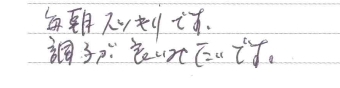 毎朝スッキリです。
調子が良いみたいです。